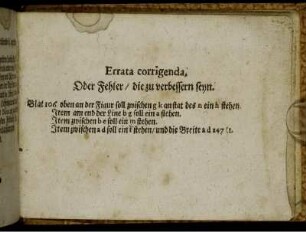 Errata corrigenda,
Oder Fehler / die zu verbessern seyn.
Blat 106 oben an der Figur soll zwischen g k anstat des n ein h stehen.
Item am end der Lini b g soll ein a stehen.
Item zwischen b e soll ein m stehen.
Item zwischen a d soll ein f stehen / und die Breite a d 247